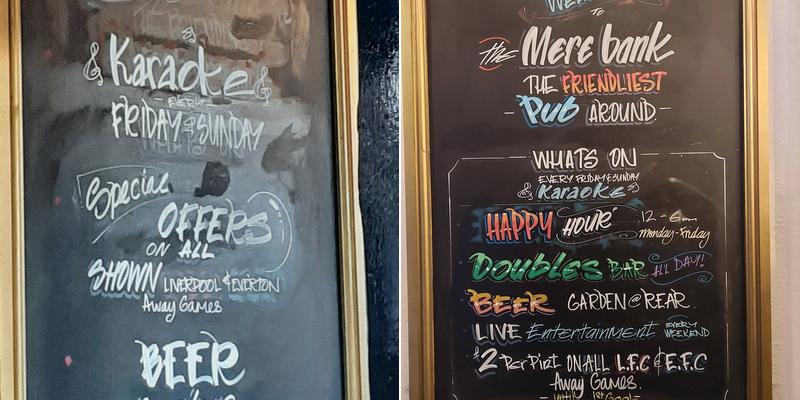 Karaoke
EVERY
FRIDAY & SUNDAY
Special
OFFERS
ON ALL
SHOWN LIVERPOOL & EVERTON
Away Games
BEER
TO
the Mere bank
THE FRIENDLIEST
Pub AROUND
WHATS ON
EVERY FRIDAY & SUNDAY
Karaoke
HAPPY HOUR 12-6pm
Monday-Friday
DOUBLES BAR ALL DAY!
BEER GARDEN @ REAR.
LIVE Entertainment EVERY
WEEKEND
£2 Per Pint ON ALL L.F.C & E.F.C
Away Games.